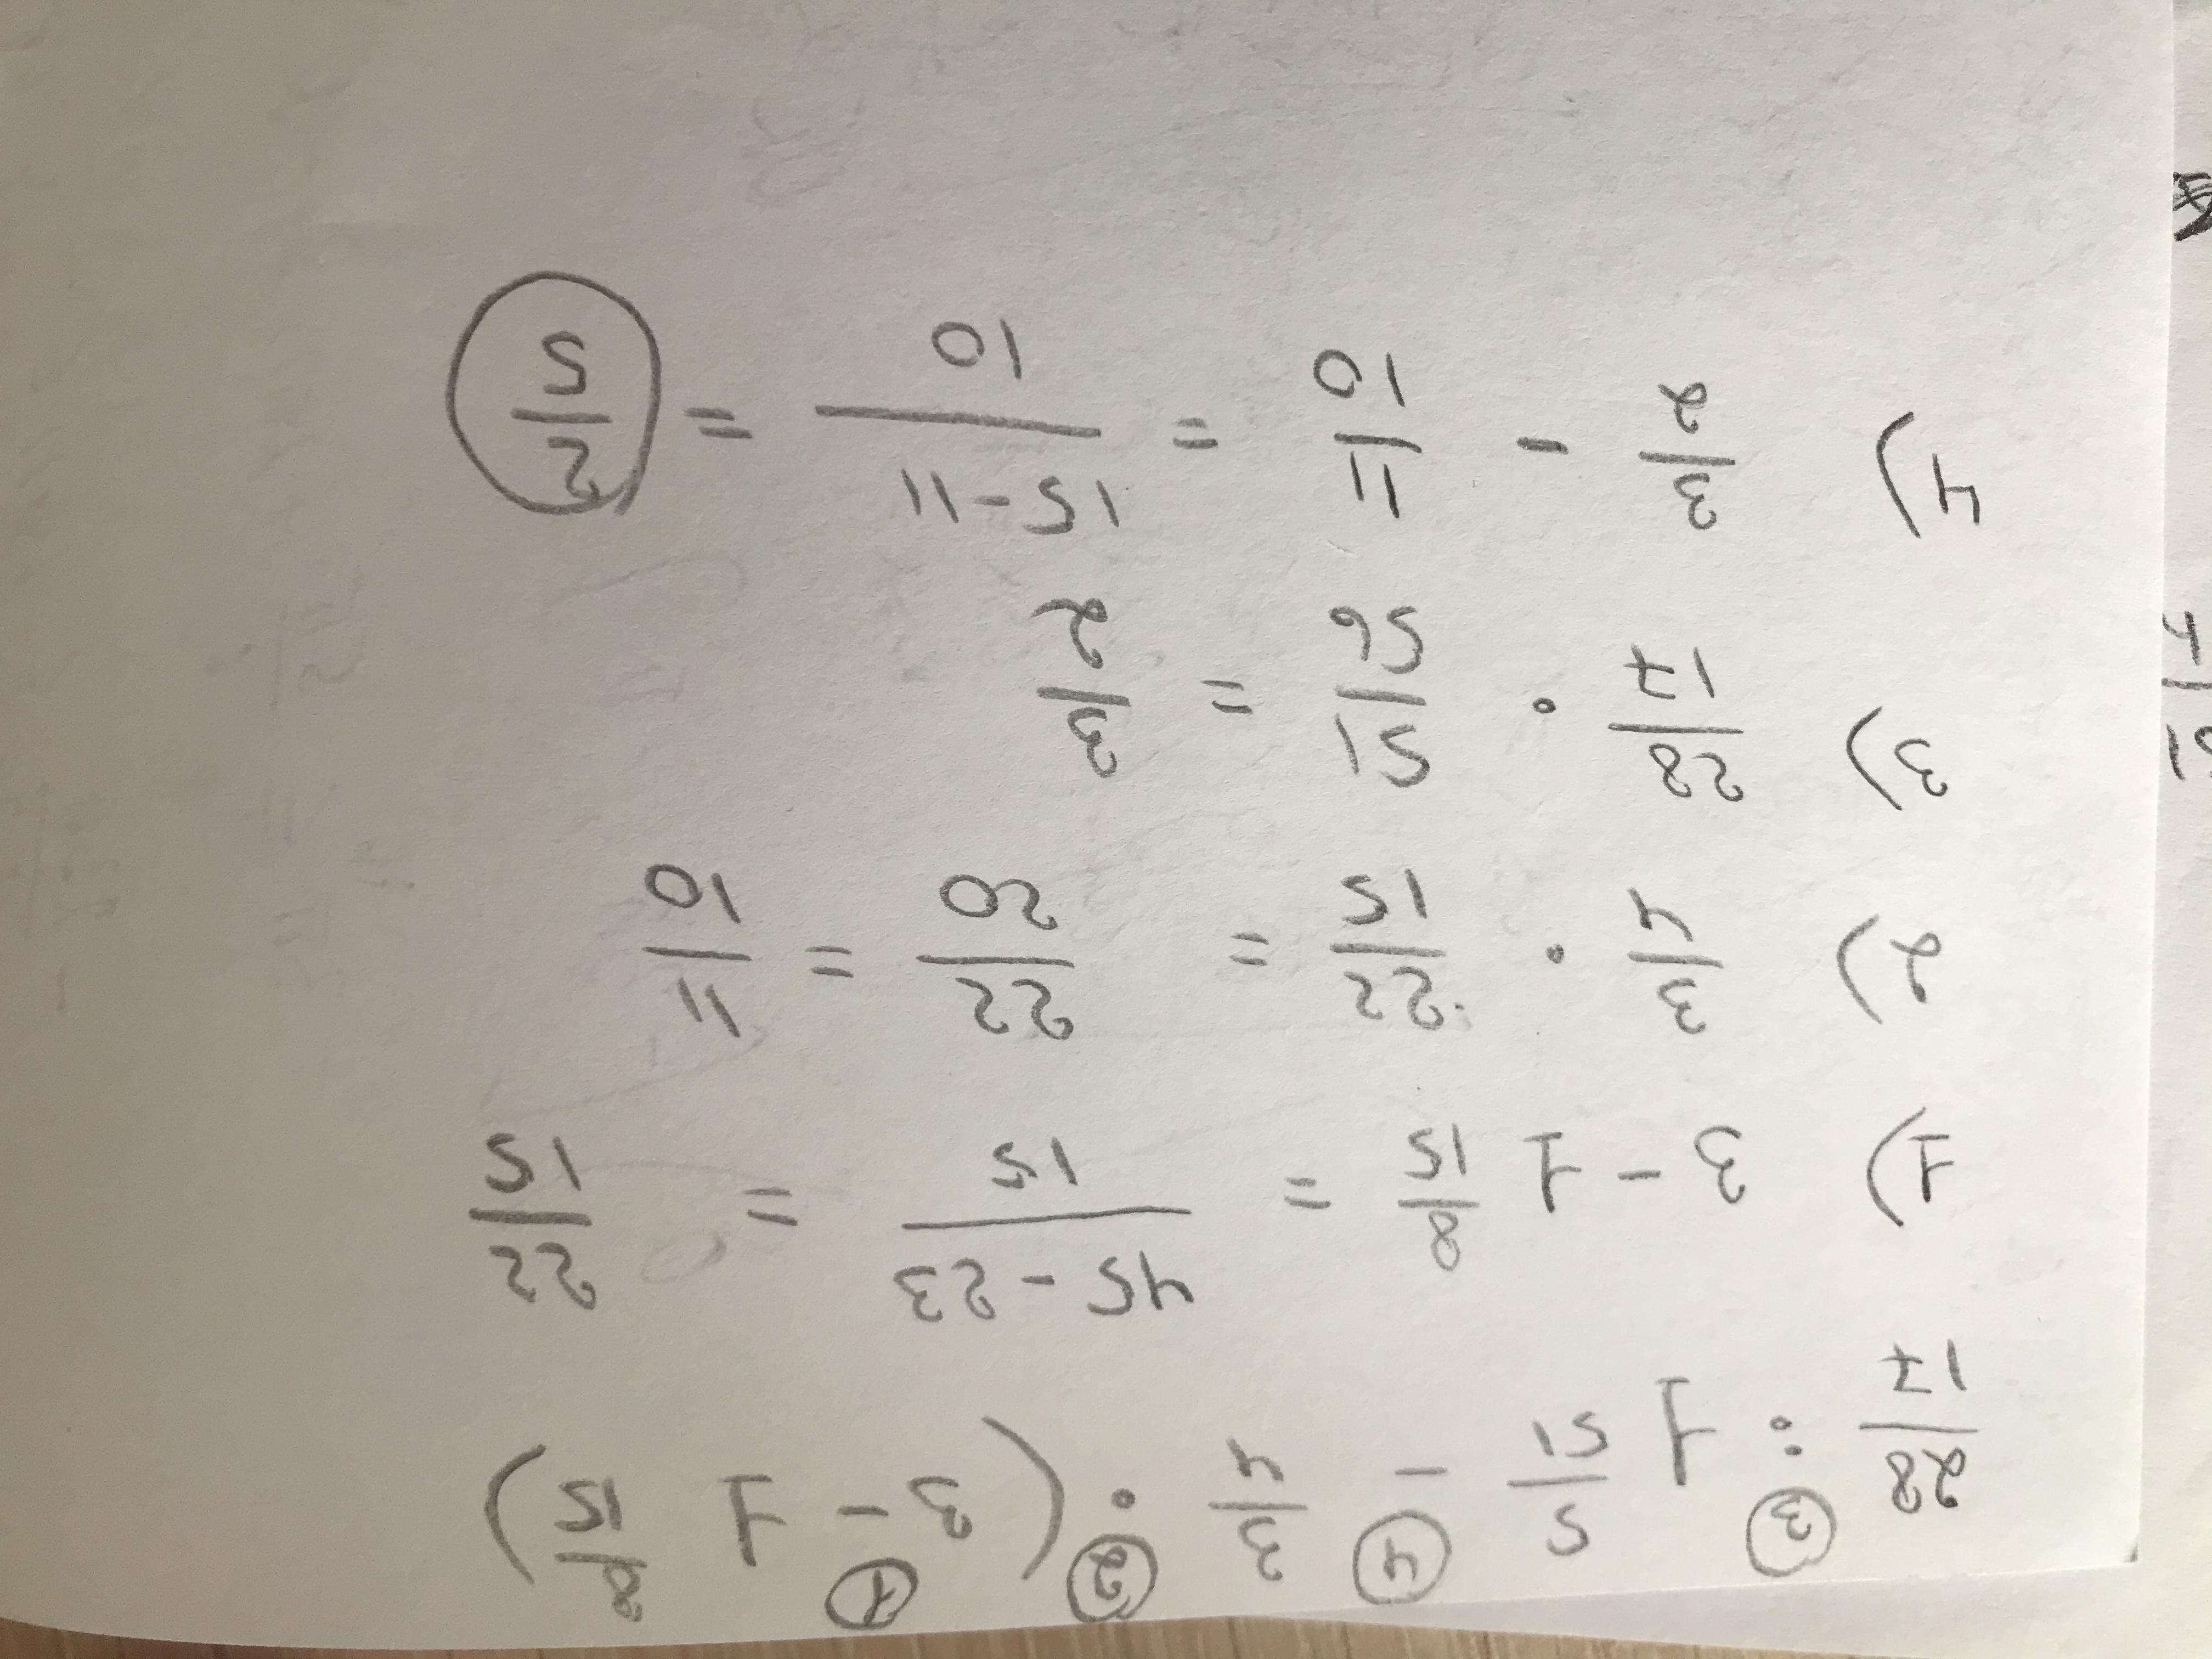 ③ ④ ② ①
28/17 : 1 5/51 - 3/4 · (3 - 1 8/15)
1) 3 - 1 8/15 = 45-23/15 = 22/15
2) 3/4 · 22/15 = 22/20 = 11/10
3) 28/17 · 51/56 = 3/2
4) 3/2 - 11/10 = 15-11/10 = 2/5